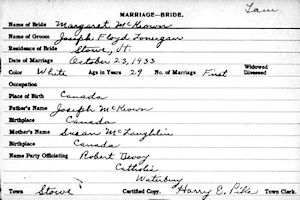 MARRIAGE—BRIDE.
Name of Bride Margaret McKeown
Name of Groom Joseph Floyd Lonergan
Residence of Bride Stowe, Vt.
Date of Marriage October 23, 1933
Color White Age in Years 29 No. of Marriage First Widowed Divorced
Occupation
Place of Birth Canada
Father's Name Joseph McKeown
Birthplace Canada
Mother's Name Susan McLaughlin
Birthplace Canada
Name Party Officiating Robert Devoy
Catholic
Waterbury
Town Stowe Certified Copy. Harry E. Pike Town Clerk.